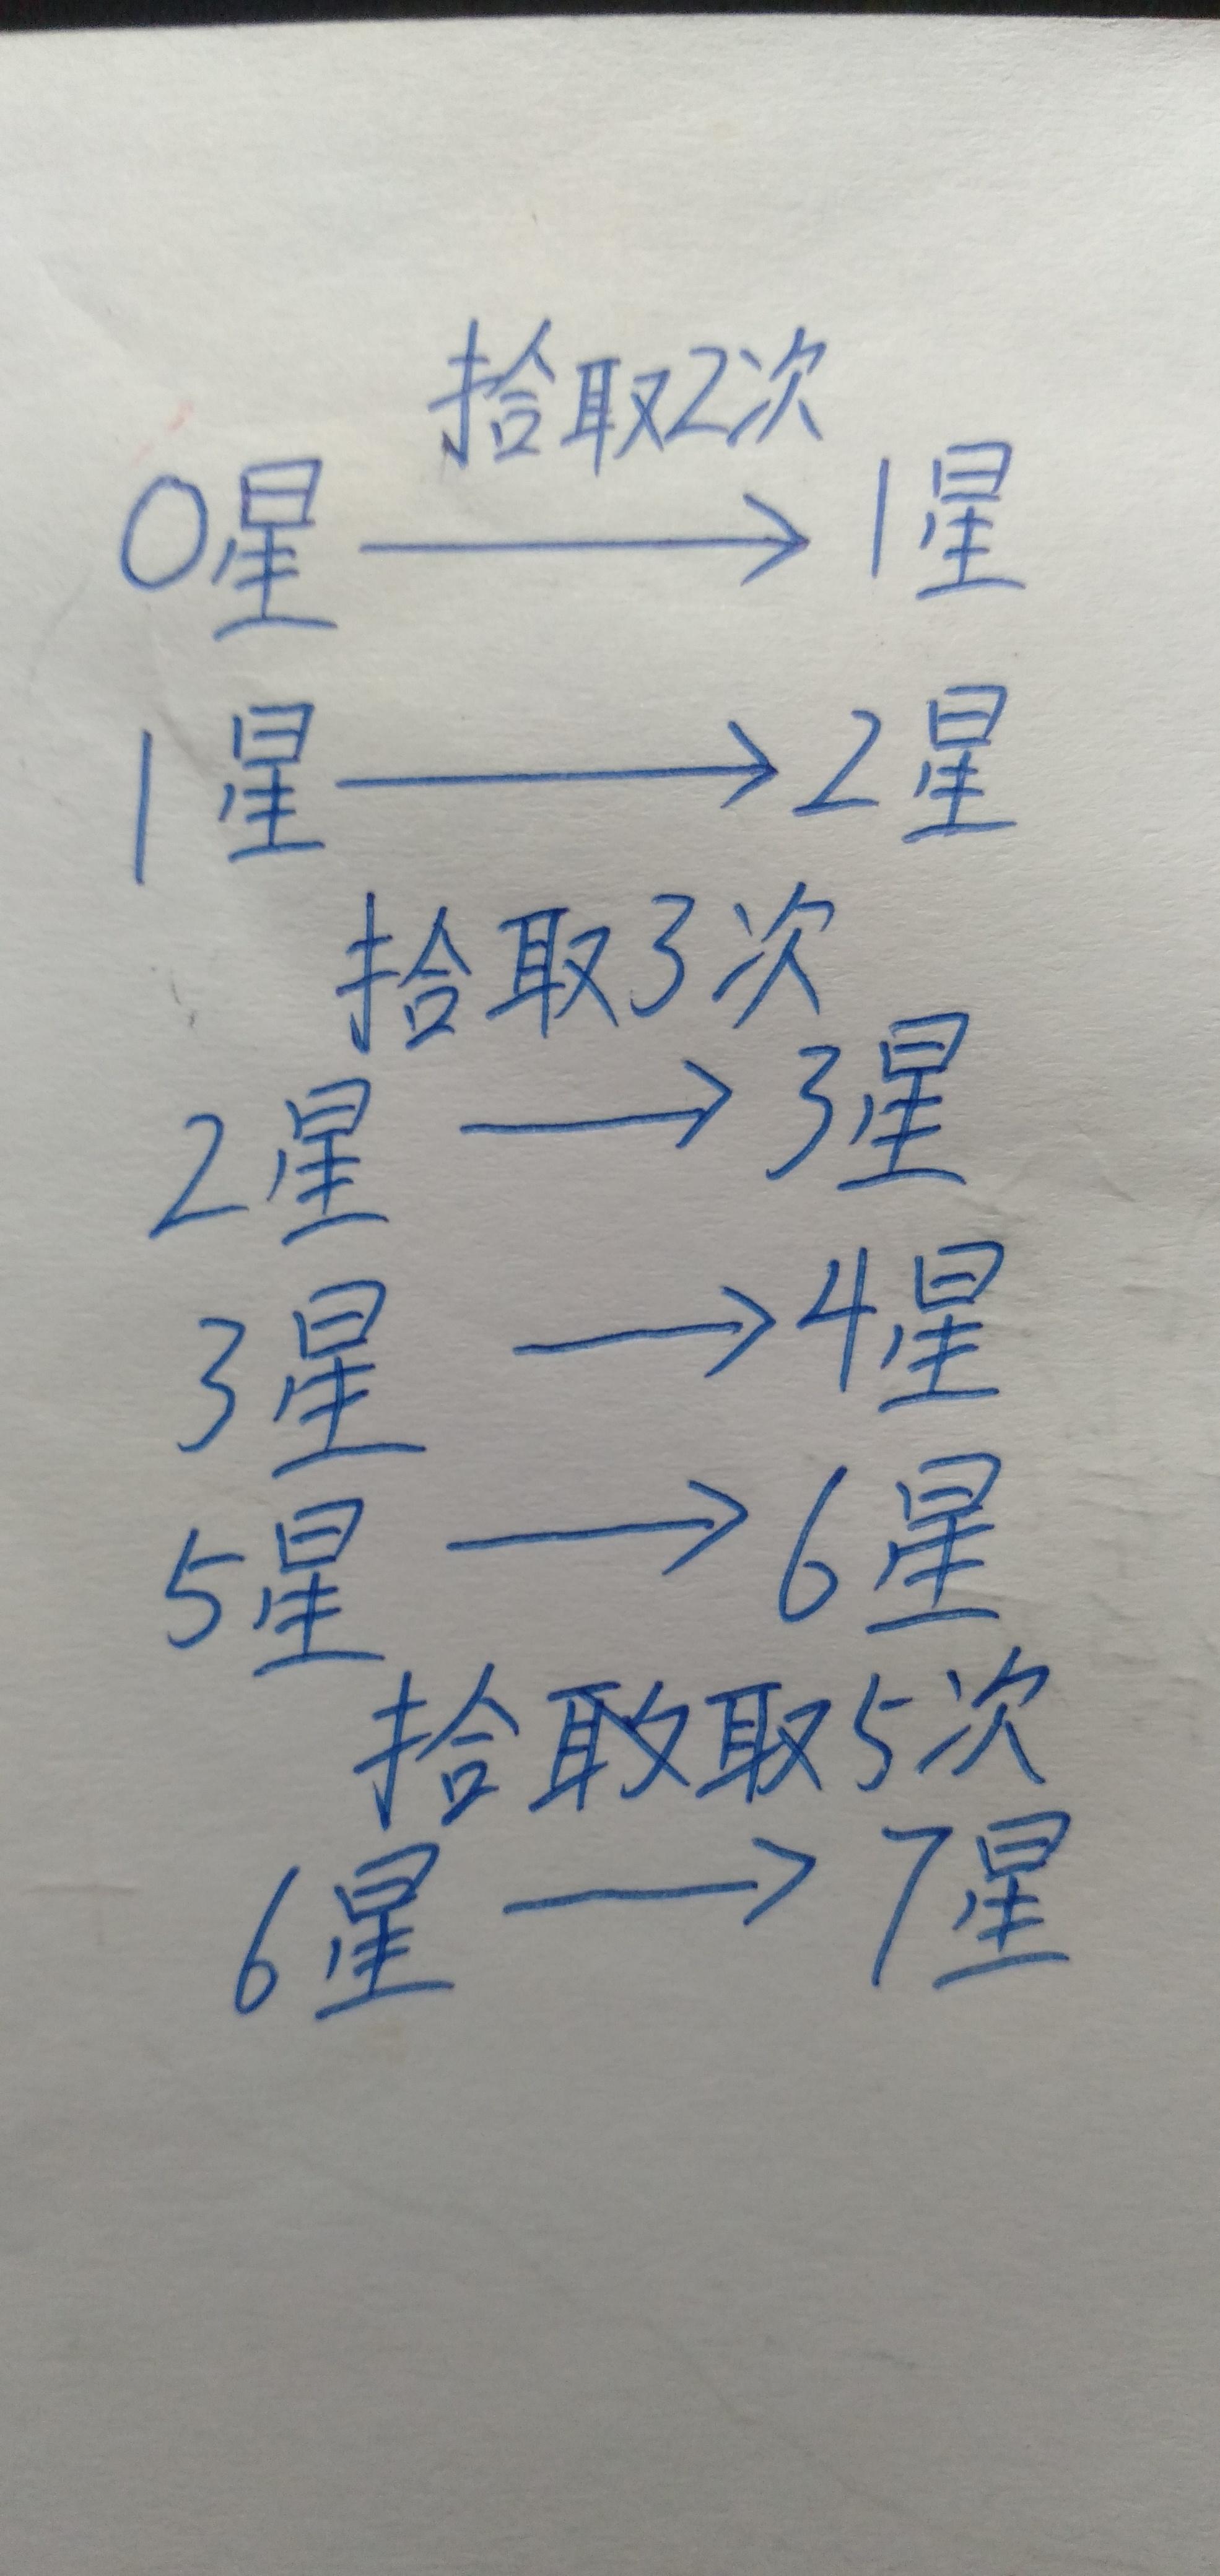 拾取2次
0星 → 1星
1星 → 2星
拾取3次
2星 → 3星
3星 → 4星
5星 → 6星
拾敢取5次
6星 → 7星